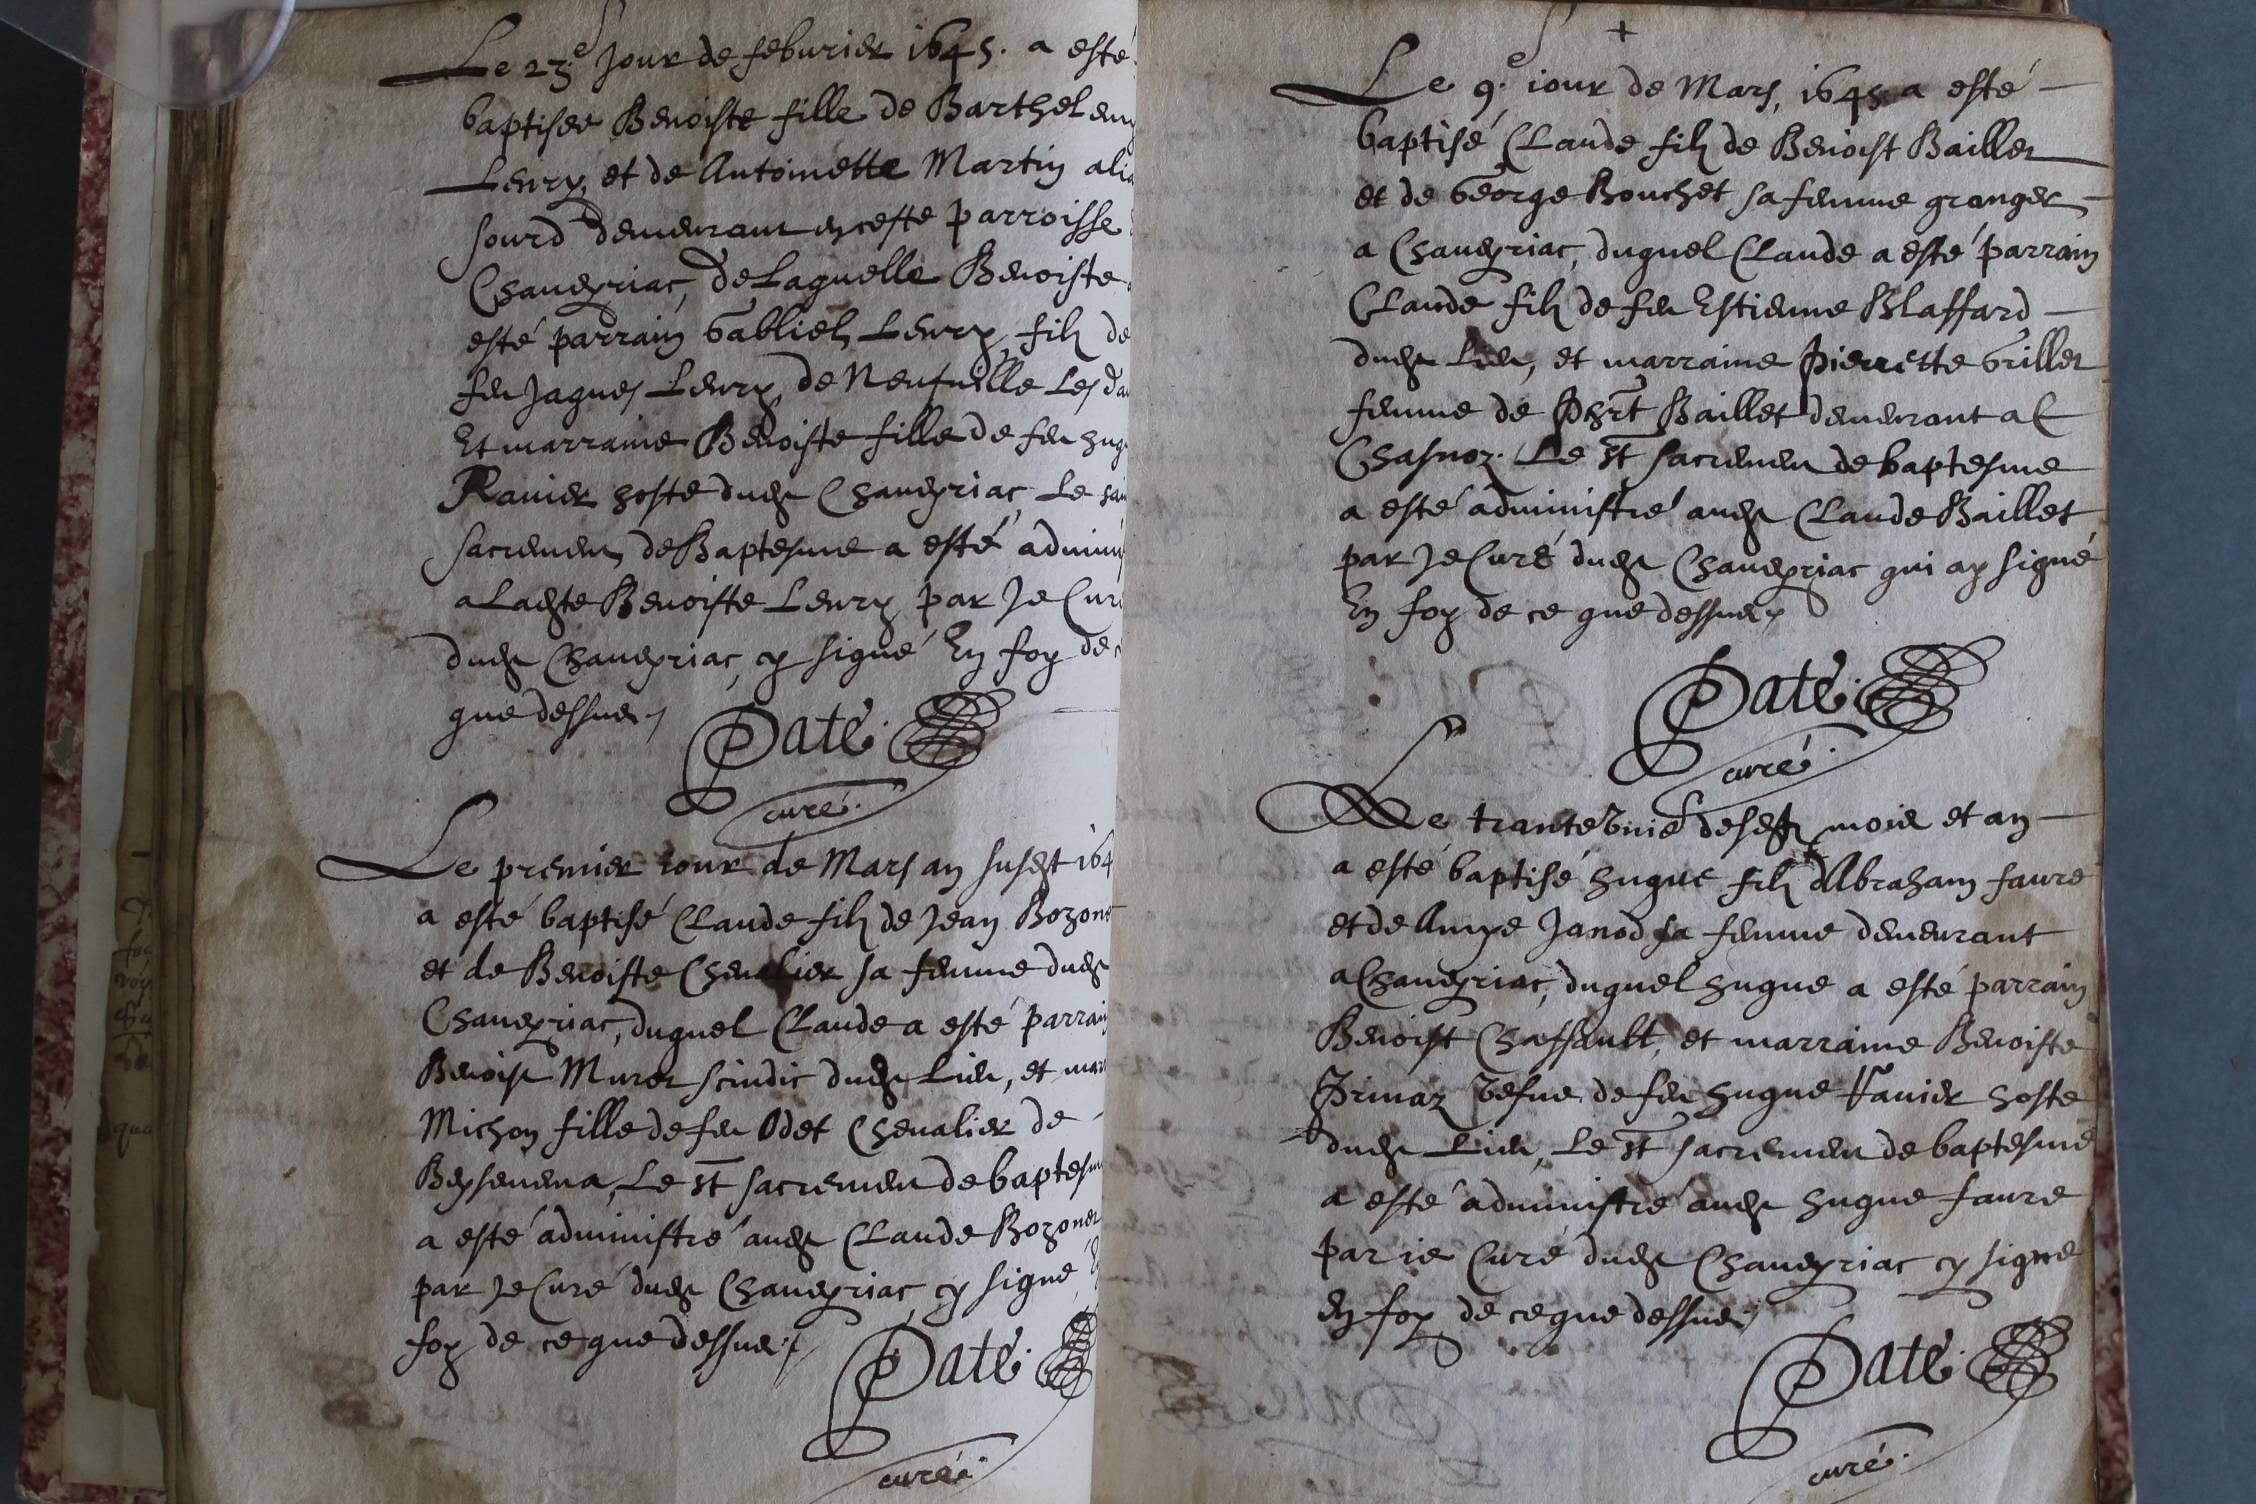 Le 23.e Jour de feburier 1645. a esté
baptisee Benoiste fille de Barthelemy
Leury, et de Antoinette Martin alia
sourd demeurant en ceste parroisse
Chaueyriac, de Laquelle Benoiste a
esté parrain Gabliel Leury, filz de
feu Jaques Leury, de Neufuille Les da
Et marraine Benoiste fille de feu hug
Rauier hoste dudt Chaueyriac, Le sai
sacrement de Baptesme a esté admini
a Ladte Benoiste Leury, par Je Curé
dudt Chaueyriac, cy signé En foy de c
que dessus.
Paté.
curé.
Le premier iour de Mars an susdt 164
a esté baptisé Claude filz de Jean Bozonet
et de Benoiste Cheualier sa femme dudt
Chaueyriac, duquel Claude a esté parrain
Benoist Muret scindic dudt Lieu, et mar
Michon fille de feu Odet Cheualier de
Beysenena, Le st sacrement de baptesm
a esté administré audt Claude Bozonet
par Je Curé dudt Chaueyriac, cy signé, E
foy de ce que dessus.
Paté.
curé.
+
Le 9.e iour de Mars, 1645 a esté
baptisé Claude filz de Benoist Baillet
et de George Bouchet sa femme granger
a Chaueyriac, duquel Claude a esté parrain
Claude filz de feu Estienne Blaffard
dudt Lieu, et marraine Pierrette Grillet
femme de Phrt Baillet demeurant a C
Chasnoz. Le st sacrement de baptesme
a esté administré audt Claude Baillet
par Je Curé dudt Chaueyriac qui ay signé
En foy de ce que dessus.
Paté.
curé.
Le trante vnie desdt mois et an
a esté baptisé hugue filz d'Abraham faure
et de Amye Janod sa femme demeurant
a Chaueyriac, duquel hugue a esté parrain
Benoist Chaffault, et marraine Benoiste
vefue de feu hugue Rauier hoste
dudt Lieu, Le st sacrement de baptesme
a esté administré audt hugue faure
par ie Curé dudt Chaueyriac cy signe
En foy de ce que dessus.
Paté.
curé.